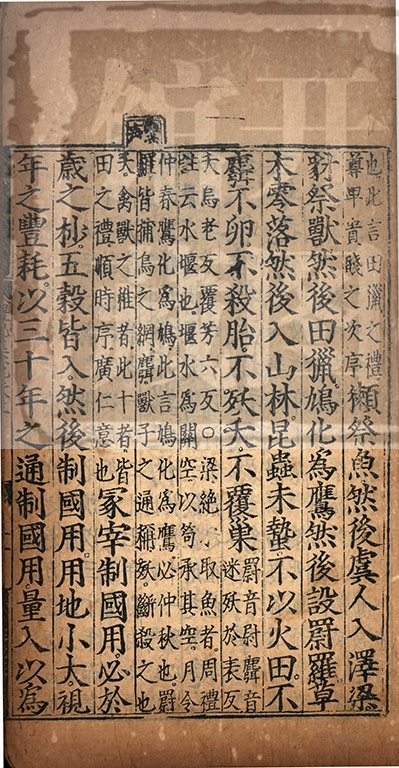 也此言田獵之禮
尊卑貴賤之次序
獺祭魚然後虞人入澤梁
豺祭獸然後田獵鳩化為鷹然後設罻羅草
木零落然後入山林昆蟲未蟄不以火田不
麛不卵不殺胎不殀夭不覆巢
罻音尉麛音
迷殀於表反
夭烏老反覆芳六反○梁絶水取魚者周禮
註云水堰也堰水為關空以笱承其空月令
仲春鷹化為鳩此言鳩化為鷹必仲秋也罻
羅皆捕鳥之網麛獸子之通稱殀斷殺之也
夭禽獸之稚者此十者皆
田之禮順時序廣仁意也
冢宰制國用必於
歲之杪五穀皆入然後制國用用地小大視
年之豐耗以三十年之通制國用量入以為